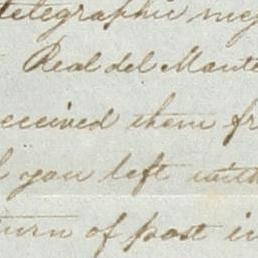 telegraphic mes
Real del Monte
eceived them fr
l you left with
turn of post in